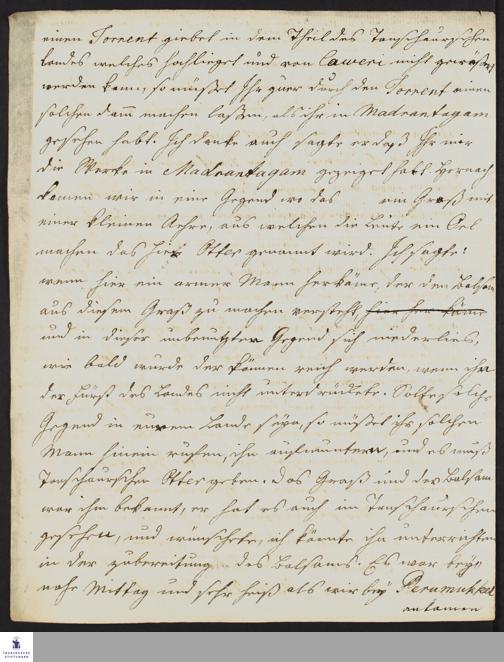 einen Torrent giebet in dem Theil des Tanschaurschen
Landes welches hochlieget und von Caweri nicht gewäßert
werden kann, so müßet Ihr quer durch den Torrent einen
solchen Damm machen laßen, als ihr in Madrantagam
gesehen habt. Ich danke euch sagte er daß Ihr mir
die Werke in Madrantagam gezeiget habt. Hernach
kamen wir in eine Gegend wo das ein Graß mit
einer kleinen Aehre, aus welchen die Leute ein Oel
machen das hier Otter genannt wird. Ich sagte:
wenn hier ein armer Mann herkäme, der den Balsam
aus diesem Graß zu machen versteht, hier her käme
und in dieser unbenutzten Gegend sich niederließ,
wie bald würde der können reich werden, wenn ihn
der Fürst des Landes nicht unterdrückete. Solte solche
Gegend in eurem Lande seyn, so müßet ihr solchen
Mann hinein rufen, ihn aufmuntern, und es muß
Tanschaurschen Otter geben. Das Graß und der Balsam
war ihm bekannt, er hat es auch im Tanschaurschen
gesehen, und wünschete, ich könnte ihn unterrichten
in der zubereitung des Balsams. Es war bey
nahe Mittag und sehr heiß als wir bey Perumukkel
ankamen
FRANCKESCHE
STIFTUNGEN